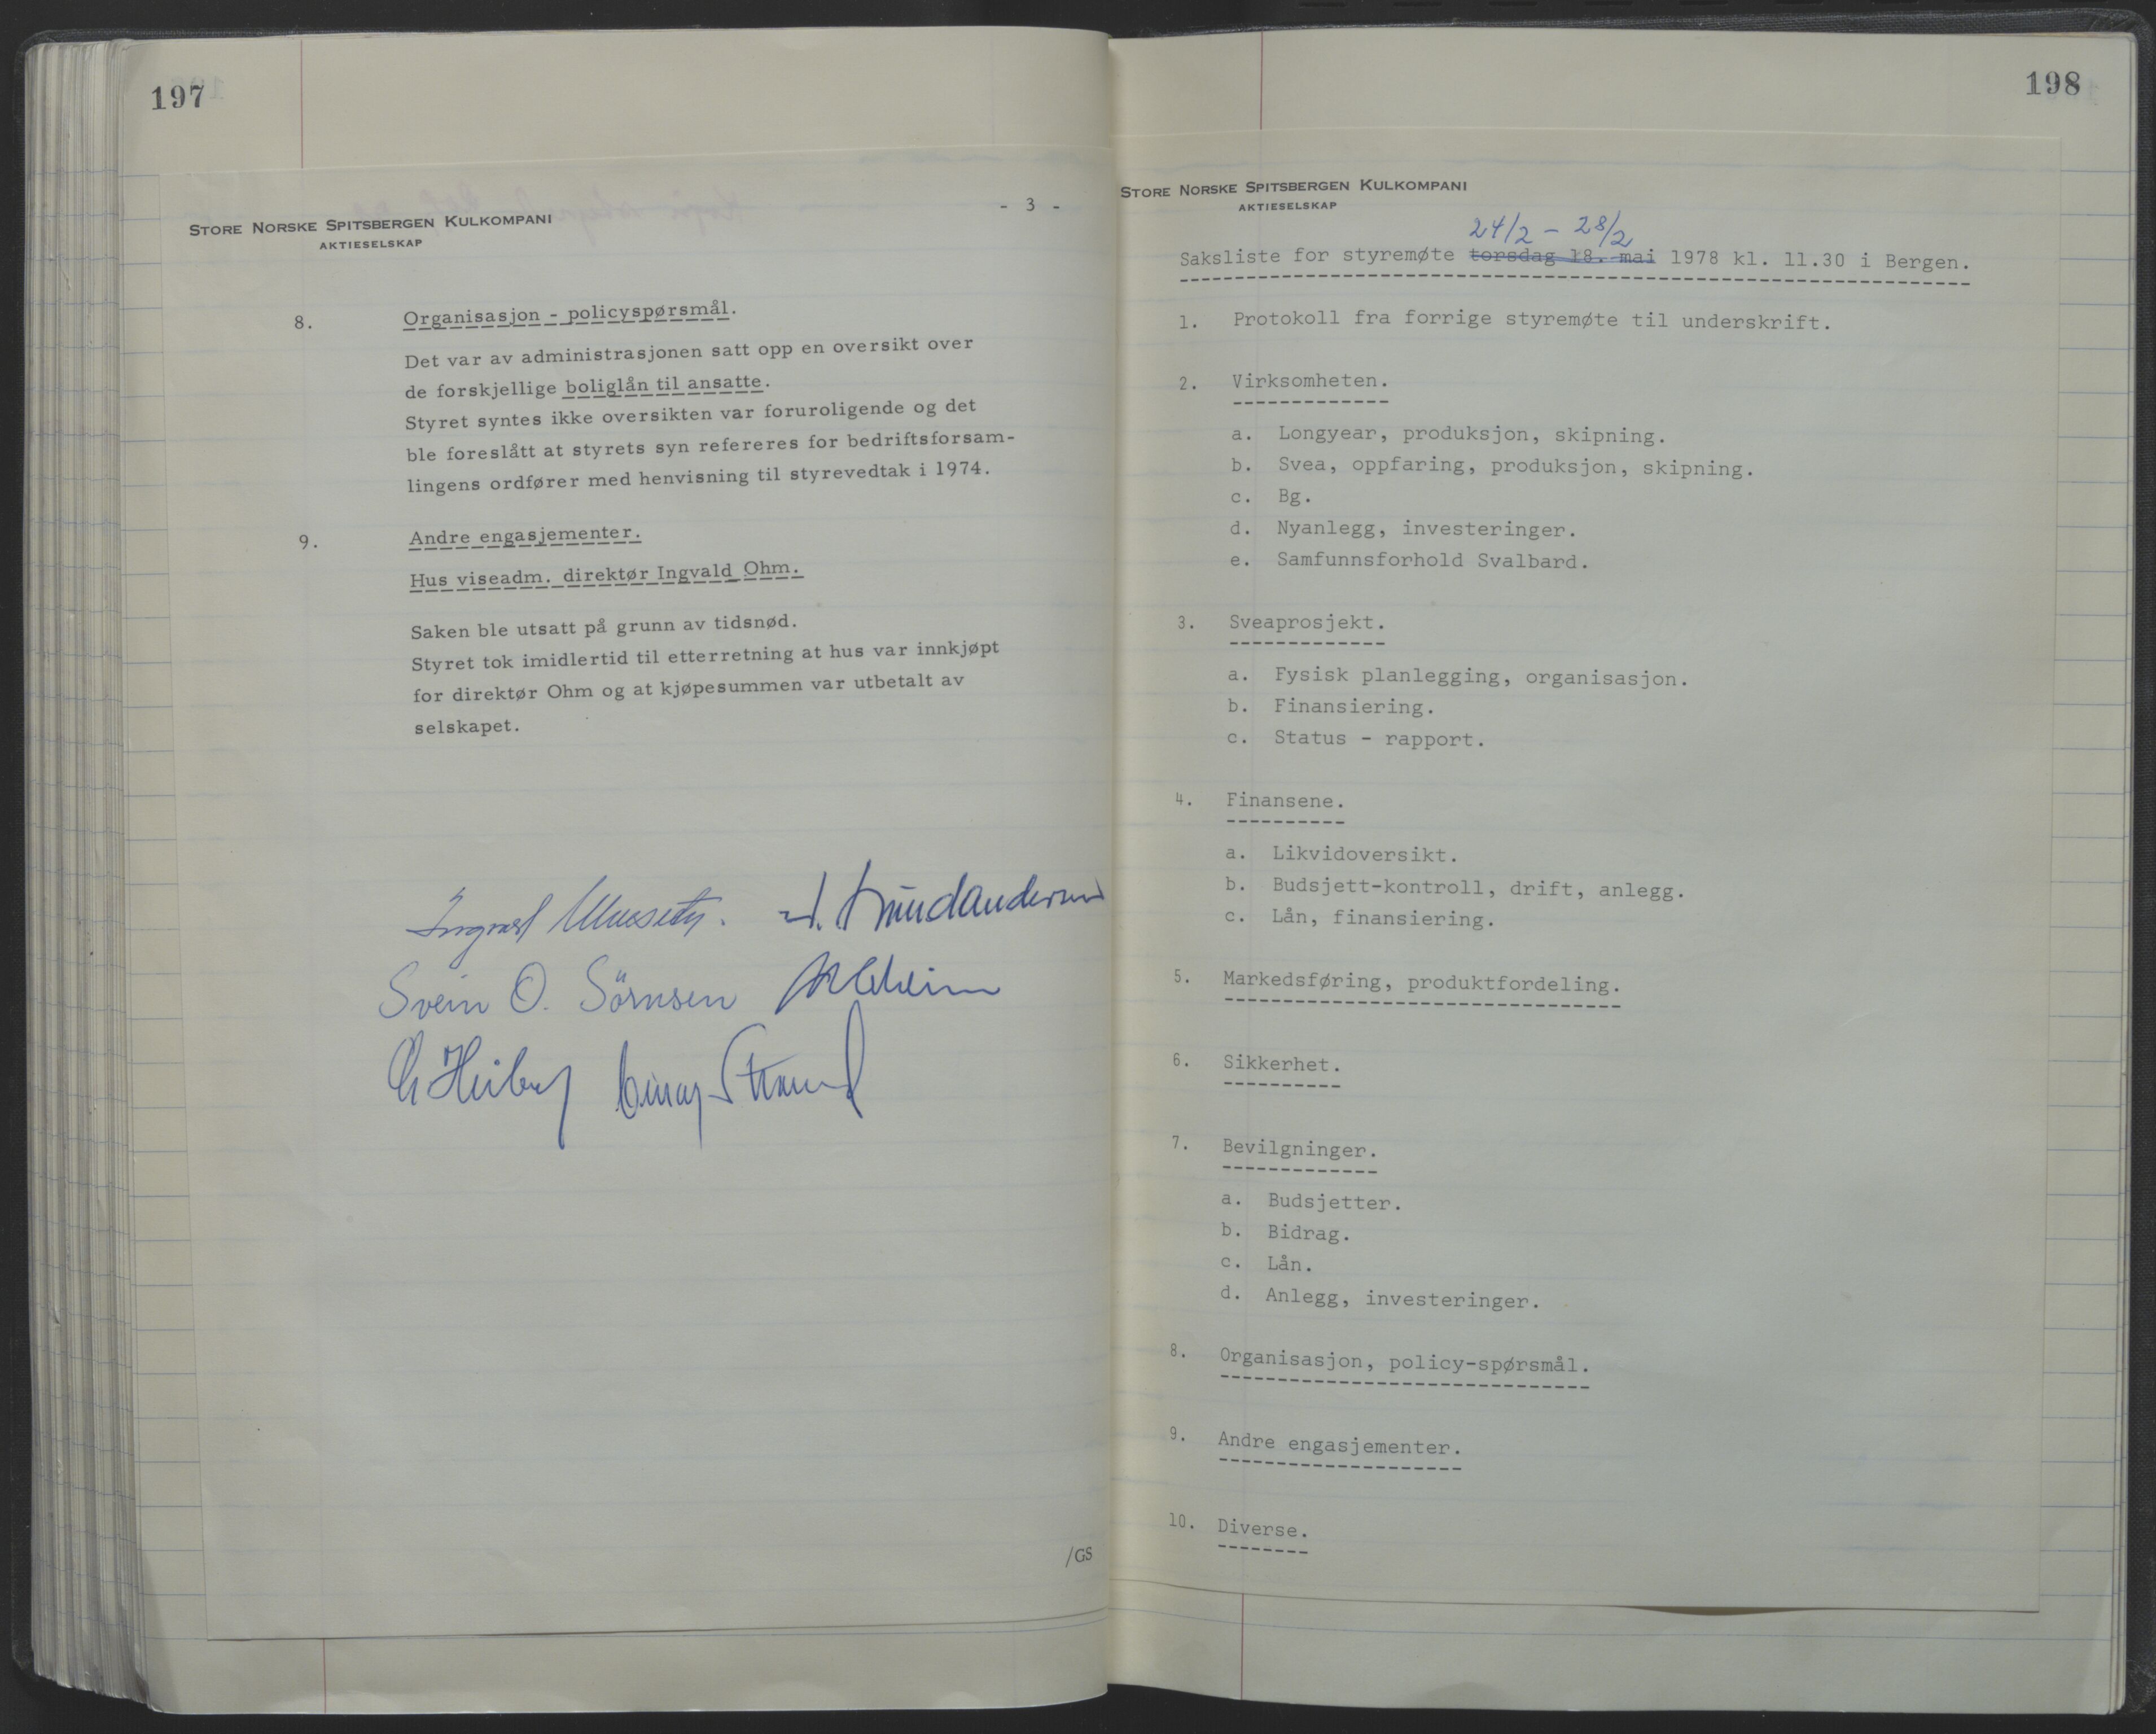 197
STORE NORSKE SPITSBERGEN KULKOMPANI
AKTIESELSKAP
- 3 -
8. Organisasjon - policyspørsmål.
Det var av administrasjonen satt opp en oversikt over
de forskjellige boliglån til ansatte.
Styret syntes ikke oversikten var foruroligende og det
ble foreslått at styrets syn refereres for bedriftsforsam-
lingens ordfører med henvisning til styrevedtak i 1974.
9. Andre engasjementer.
Hus viseadm. direktør Ingvald Ohm.
Saken ble utsatt på grunn av tidsnød.
Styret tok imidlertid til etterretning at hus var innkjøpt
for direktør Ohm og at kjøpesummen var utbetalt av
selskapet.
Svein O. Sörnsen
Einar Strand
/GS
198
STORE NORSKE SPITSBERGEN KULKOMPANI
AKTIESELSKAP
24/2 - 28/2
Saksliste for styremøte torsdag 18. mai 1978 kl. 11.30 i Bergen.
1. Protokoll fra forrige styremøte til underskrift.
2. Virksomheten.
a. Longyear, produksjon, skipning.
b. Svea, oppfaring, produksjon, skipning.
c. Bg.
d. Nyanlegg, investeringer.
e. Samfunnsforhold Svalbard.
3. Sveaprosjekt.
a. Fysisk planlegging, organisasjon.
b. Finansiering.
c. Status - rapport.
4. Finansene.
a. Likvidoversikt.
b. Budsjett-kontroll, drift, anlegg.
c. Lån, finansiering.
5. Markedsføring, produktfordeling.
6. Sikkerhet.
7. Bevilgninger.
a. Budsjetter.
b. Bidrag.
c. Lån.
d. Anlegg, investeringer.
8. Organisasjon, policy-spørsmål.
9. Andre engasjementer.
10. Diverse.